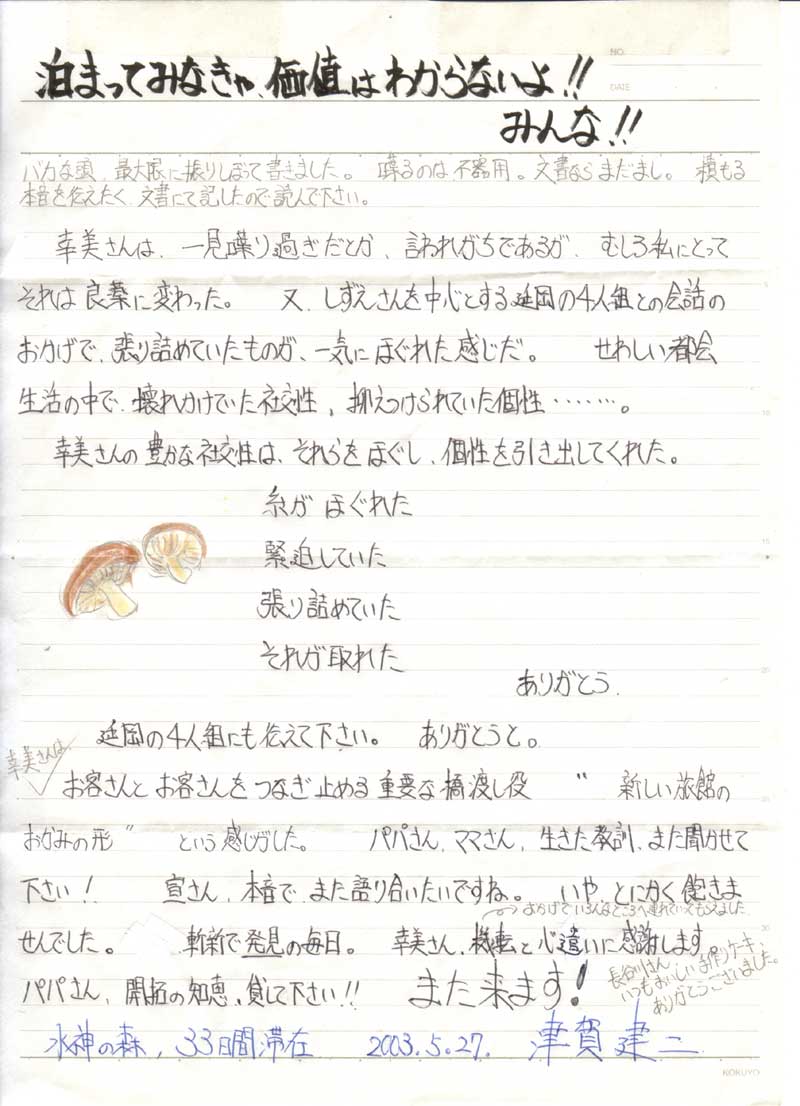 NO.
DATE
泊まってみなきゃ、価値はわからないよ!!
みんな!!
バカな頭、最大限に振りしぼって書きました。 喋るのは不器用。文書ならまだまし。 積もる
本音を伝えたく、文書にて記したので読んで下さい。
幸美さんは、一見喋り過ぎだとか、言われがちであるが、むしろ私にとって
それは良薬に変わった。 又、しずえさんを中心とする延岡の4人組との会話の
おかげで、張り詰めていたものが、一気にほぐれた感じだ。 せわしい都会
生活の中で、壊れかけていた社交性、抑えつけられていた個性‥‥‥‥。
幸美さんの豊かな社交性は、それらをほぐし、個性を引き出してくれた。
糸が ほぐれた
緊迫していた
張り詰めていた
それが取れた
ありがとう.
延岡の4人組にも伝えて下さい。 ありがとうと。
幸美さんは、
お客さんとお客さんをつなぎ止める重要な橋渡し役 〃 新しい旅館の
おかみの形〃 という感じがした。 パパさん、ママさん、生きた教訓、また聞かせて
下さい! 宣さん、本音で、また語り合いたいですね。 いや、とにかく飽きま
おかげでいろんなところへ連れていってもらえました
せんでした。 斬新で発見の毎日。 幸美さん、機転と心遣いに感謝します
長谷川さん、
いつもおいしい手作りケーキ、
ありがとうございました。
パパさん、開拓の知恵、貸して下さい!! また来ます!
水神の森, 33日間滞在 2003.5.27. 津賀建二
KOKUYO